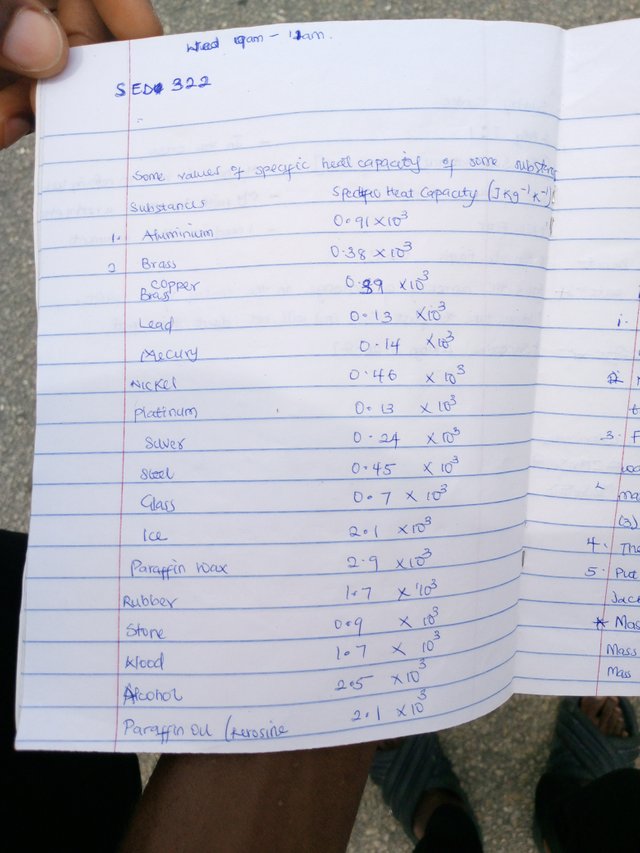 Wed 9am - 11am.
SED 322
Some values of specific heat capacity of some
Substances Specific Heat Capacity (J Kg⁻¹ K⁻¹)
1. Aluminium 0.91 × 10³
2 Brass 0.38 × 10³
Copper 0.39 × 10³
Brass
Lead 0.13 × 10³
Mecury 0.14 × 10³
Nickel 0.46 × 10³
Platinum 0.13 × 10³
Silver 0.24 × 10³
Steel 0.45 × 10³
Glass 0.7 × 10³
Ice 2.1 × 10³
Paraffin wax 2.9 × 10³
Rubber 1.7 × 10³
Stone 0.9 × 10³
Wood 1.7 × 10³
Alcohol 2.5 × 10³
Paraffin Oil (Kerosine 2.1 × 10³
i.
3. F
ma
(a)
4. The
5. Put
Jack
* Mass
Mass
Mass